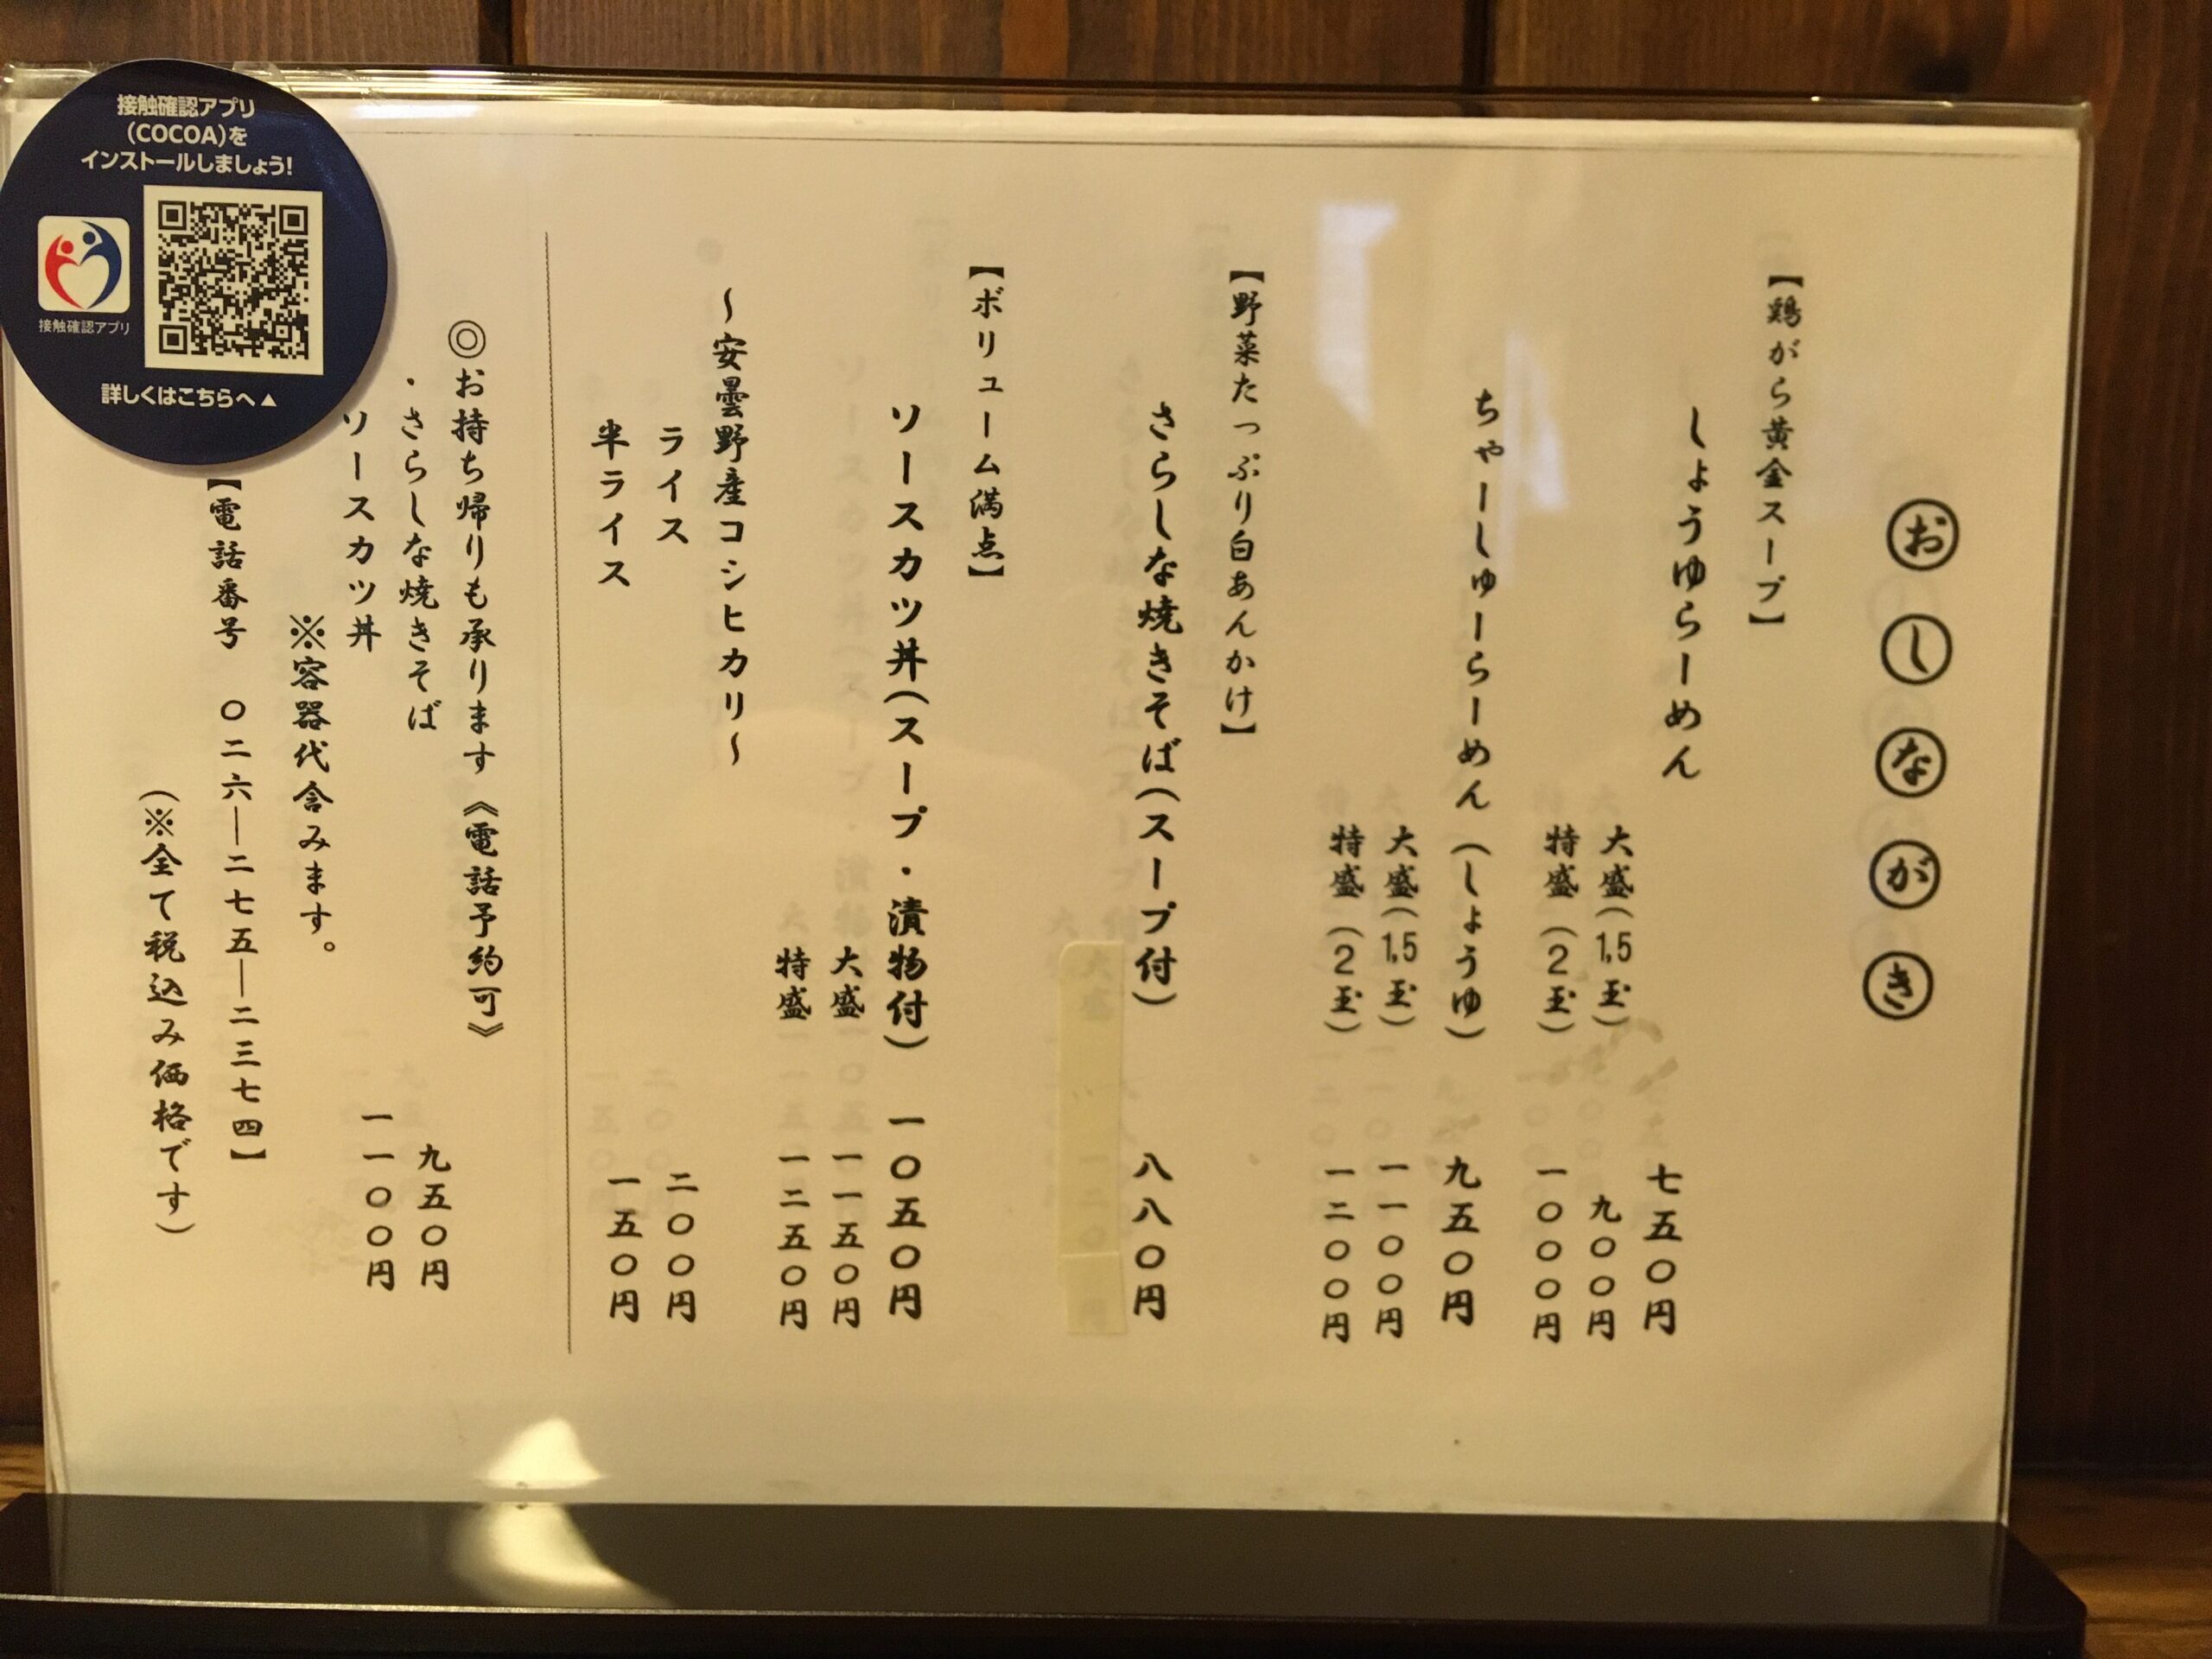 おしながき
【鶏がら黄金スープ】
しょうゆらーめん 七五〇円
大盛(1,5玉) 九〇〇円
特盛(2玉) 一〇〇〇円
ちゃーしゅーらーめん(しょうゆ) 九五〇円
大盛(1,5玉) 一一〇〇円
特盛(2玉) 一二〇〇円
【野菜たっぷり白あんかけ】
さらしな焼きそば(スープ付) 八八〇円
【ボリューム満点】
ソースカツ丼(スープ・漬物付) 一〇五〇円
大盛 一一五〇円
特盛 一二五〇円
～安曇野産コシヒカリ～
ライス 二〇〇円
半ライス 一五〇円
◎お持ち帰りも承ります《電話予約可》
・さらしな焼きそば 九五〇円
ソースカツ丼 一一〇〇円
※容器代含みます。
【電話番号 〇二六―二七五―二三七四】
(※全て税込み価格です)
接触確認アプリ
(COCOA)を
インストールしましょう!
接触確認アプリ
詳しくはこちらへ▲